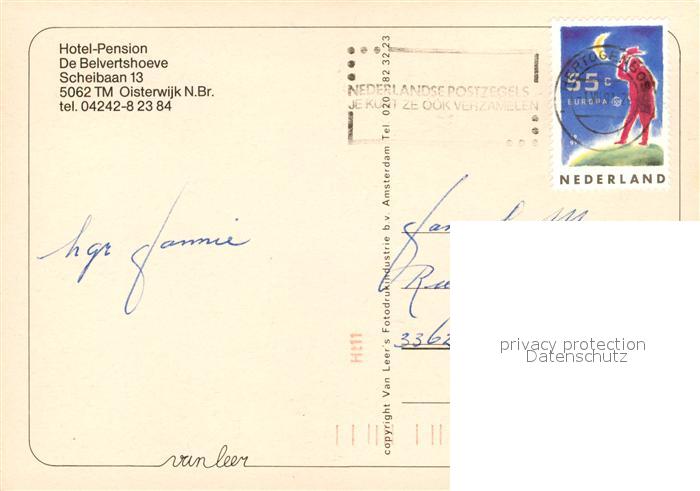 Hotel-Pension
De Belvertshoeve
Scheibaan 13
5062 TM Oisterwijk N.Br.
tel. 04242-8 23 84
NEDERLANDSE POSTZEGELS
JE KUNT ZE OOK VERZAMELEN
55 c
EUROPA
NEDERLAND
hgr Jannie
3362
copyright Van Leer's Fotodrukindustrie b.v. Amsterdam Tel. 020 - 82 32 23
van leer
privacy protection
Datenschutz